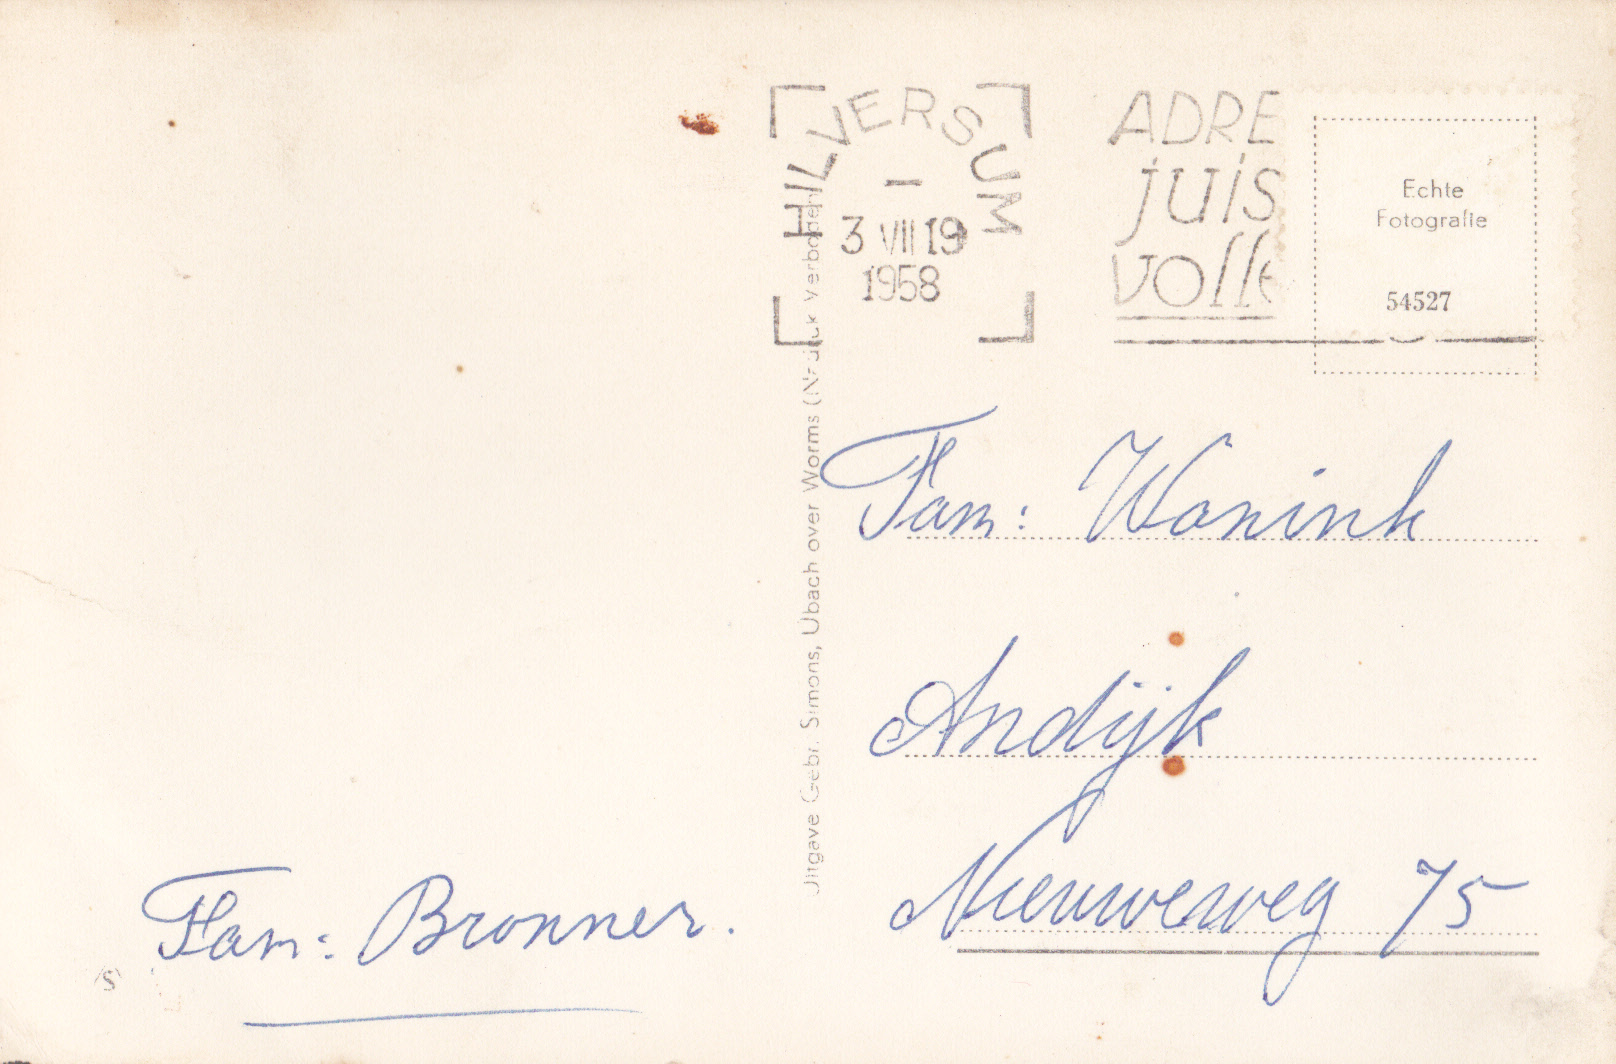 HILVERSUM
–
3 VII 19
1958
ADRE
juis
volle
Echte
Fotografie
54527
Uitgave Gebr. Simons, Ubach over Worms (Nadruk verboden)
Fam: Wonink
Andijk
Nieuweweg 75
Fam: Bronner.
(S)